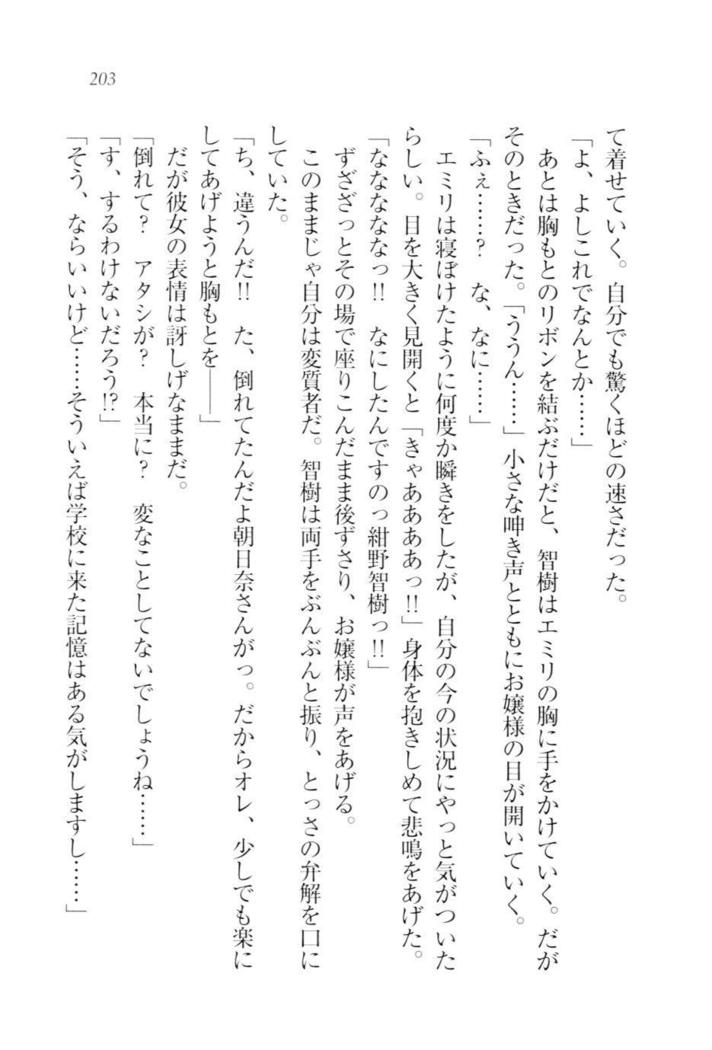 203
て着せていく。自分でも驚くほどの速さだった。
「よ、よしこれでなんとか……」
あとは胸もとのリボンを結ぶだけだと、智樹はエミリの胸に手をかけていく。だが
そのときだった。「ううん……」小さな呻き声とともにお嬢様の目が開いていく。
「ふぇ……？　な、なに……」
エミリは寝ぼけたように何度か瞬きをしたが、自分の今の状況にやっと気がついた
らしい。目を大きく見開くと「きゃああああっ!!」身体を抱きしめて悲鳴をあげた。
「なななななっ!!　なにしたんですのっ紺野智樹っ!!」
ずざざっとその場で座りこんだまま後ずさり、お嬢様が声をあげる。
このままじゃ自分は変質者だ。智樹は両手をぶんぶんと振り、とっさの弁解を口に
していた。
「ち、違うんだ!!　た、倒れてたんだよ朝日奈さんがっ。だからオレ、少しでも楽に
してあげようと胸もとを――」
だが彼女の表情は訝しげなままだ。
「倒れて？　アタシが？　本当に？　変なことしてないでしょうね……」
「す、するわけないだろう!?」
「そう、ならいいけど……そういえば学校に来た記憶はある気がしますし……」